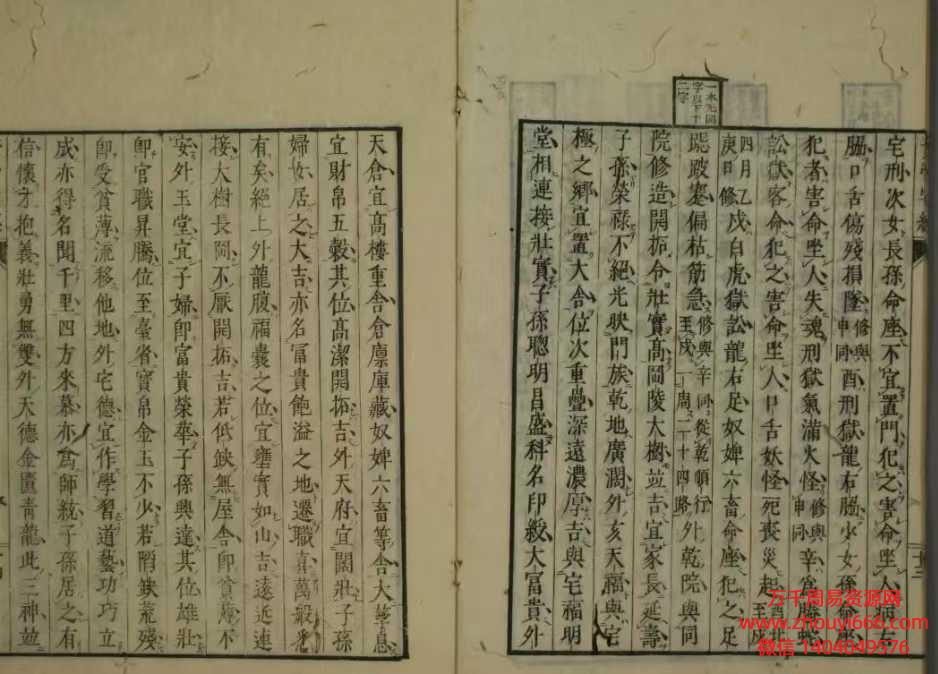 一本无岡
字
二字
宅刑次女長孫命座不宜置門犯之害命坐人
脇口舌傷殘損墜修與申同酉刑獄龍右脇少女孫命
犯者害命坐人失魂刑獄氣滿火怪修與申同辛
訟獄客命犯之害命坐人口舌妖怪死喪災起
四月乙庚日修戌白虎獄訟龍右足奴婢六畜命座犯之足
跛蹇偏枯筋急修與辛同從乾順行至戌一周二十四路外乾院與同
院修造開拓令壯實高岡陵大樹竝吉宜家長延壽
子孫榮祿不絕光映門族乾地廣濶外亥天福與宅
極之鄉宜置大舍位次重疊深遠濃厚吉與宅福明
堂相連接壯實子孫聰明昌盛科名印綬大富貴外
天倉宜高樓重舍倉廩庫藏奴婢六畜等舍大孳息
宜財帛五穀其位高潔開拓吉外天府宜闊壯子孫
婦女居之大吉亦名富貴飽溢之地遷職喜萬般悉
有矣絕上外龍腹福囊之位宜壅實如山吉遠近連
接大樹長阿不厭開拓吉若低缺無屋舍即貧薄不
安外玉堂宜子婦即富貴榮華子孫興達其位雄壯
即官職昇騰位至臺省寶帛金玉不少若陷缺荒殘
即受貧薄流移他地外宅德宜作學習道藝功巧立
成亦得名聞千里四方來慕亦為師統子孫居之有
信懷才抱義壯勇無雙外天德金匱青龍此三神竝
万千周易资源网
www.zhouyi666.com
微信 1404049576